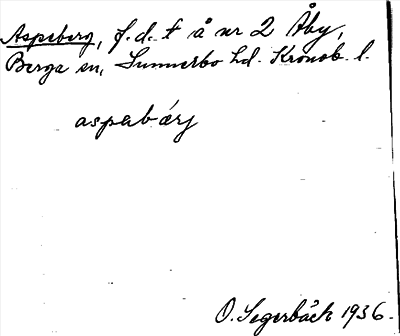 Aspeberg, f.d. t å nr 2 Åby,
Berga sn, Sunnerbo hd. Kronob. l.
aspabärj
O. Segerbäck 1936.